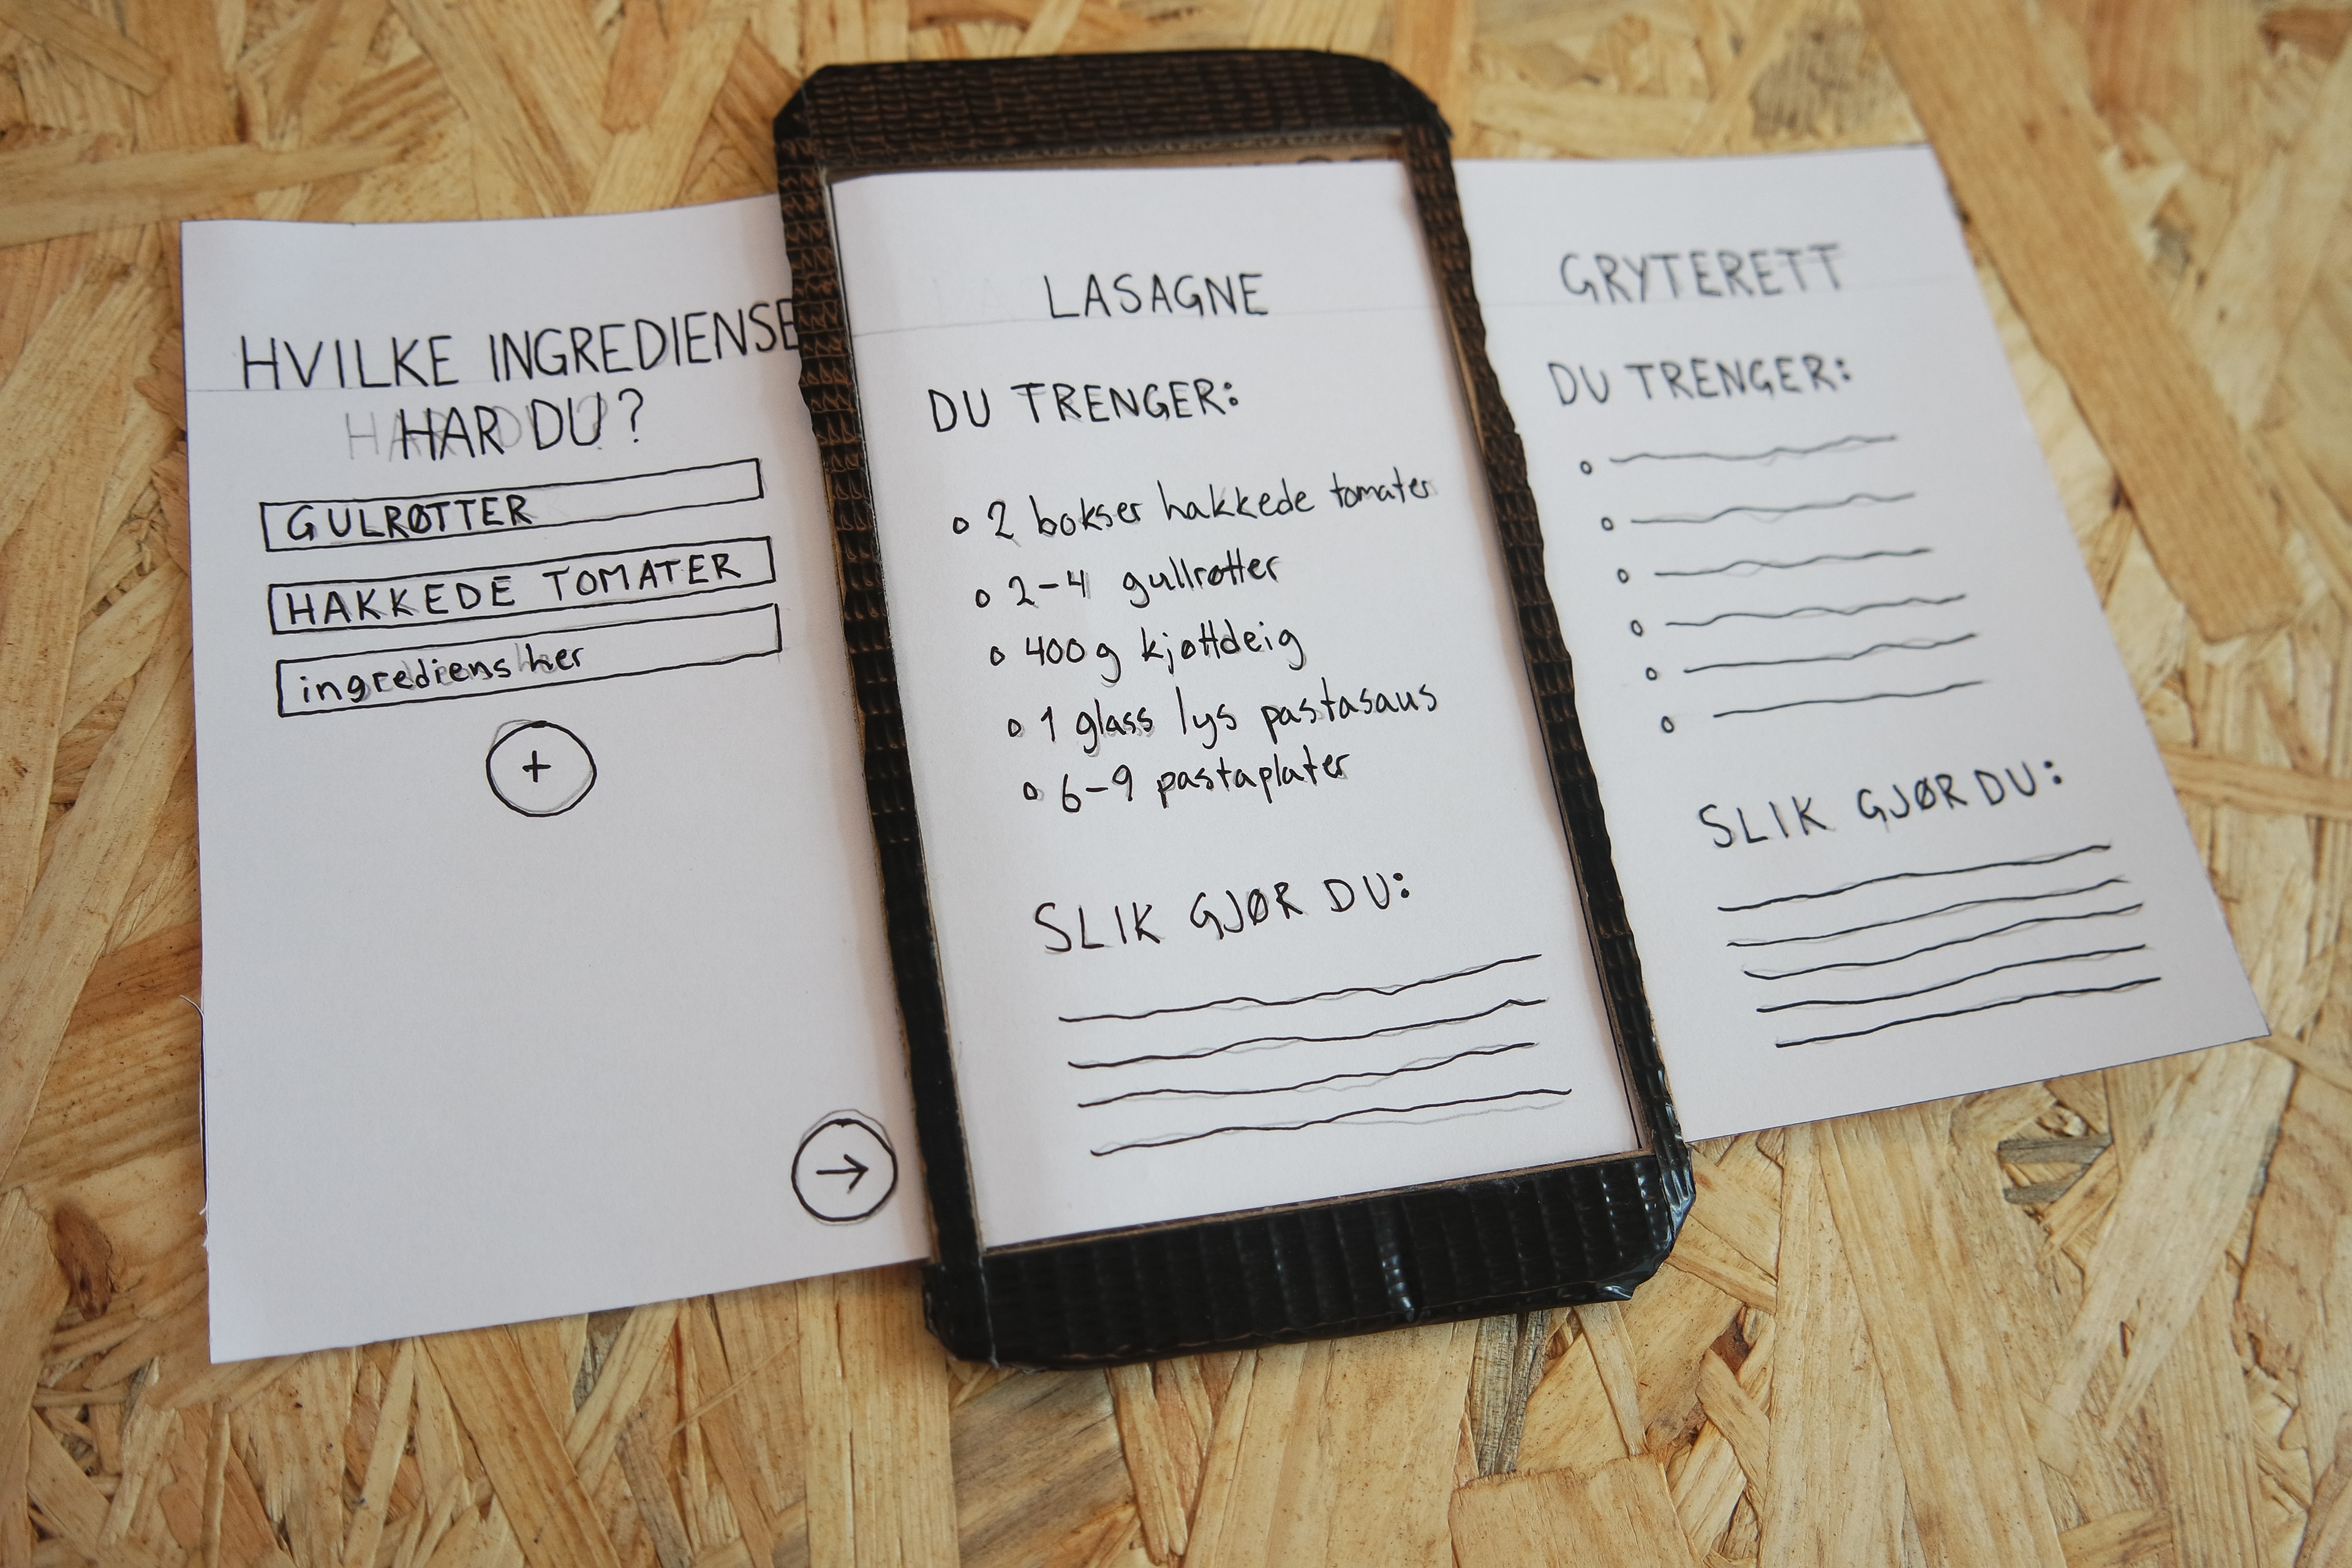 HVILKE INGREDIENSE
HAR DU?
GULRØTTER
HAKKEDE TOMATER
ingrediens her
+
→
LASAGNE
DU TRENGER:
o 2 bokser hakkede tomater
o 2-4 gullrøtter
o 400g kjøttdeig
o 1 glass lys pastasaus
o 6-9 pastaplater
SLIK GJØR DU:
GRYTERETT
DU TRENGER:
SLIK GJØR DU: